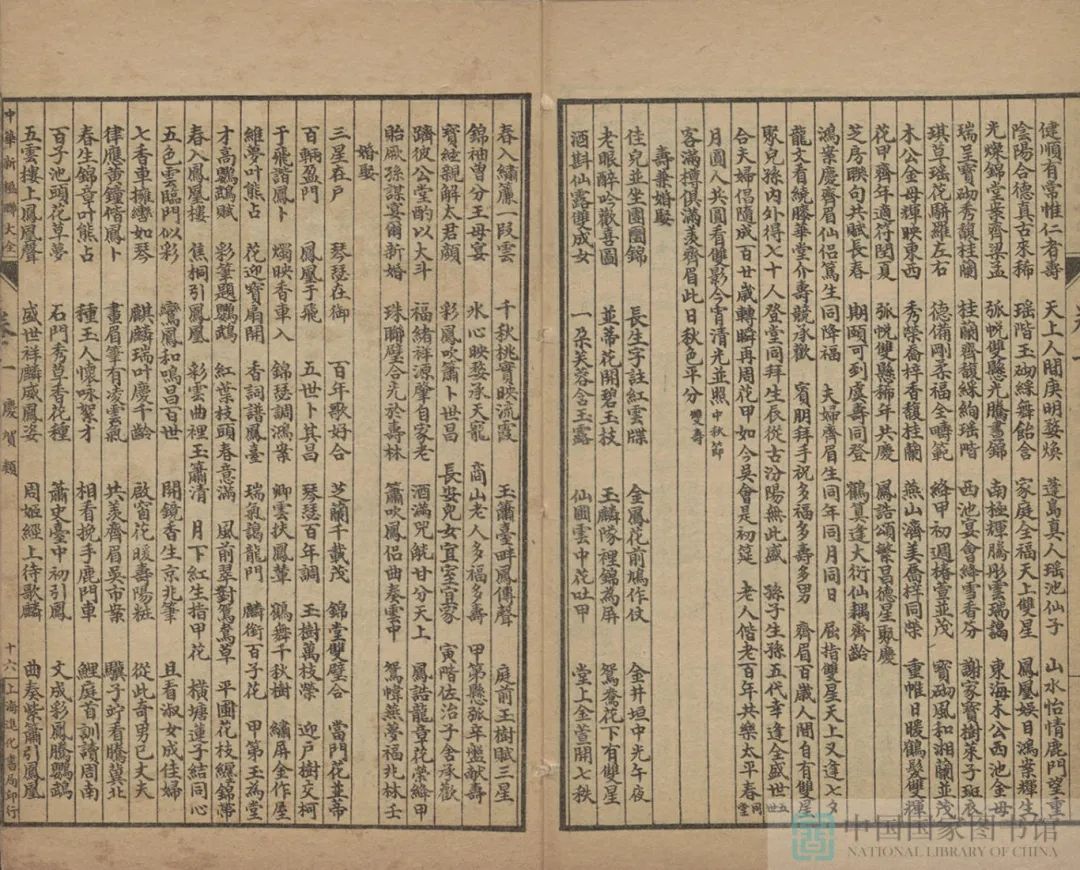 健順有常惟仁者壽　天上人間庚明婺煥　蓬島真人瑶池仙子　山水怡情鹿門望重
陰陽合德真古來稀　瑶階玉砌綵舞飴含　家庭全福天上雙星　鳳凰娛日鴻案輝生
光燦錦堂案齊梁孟　弧帨雙懸光騰晝錦　南極輝騰彤雲瑞靄　東海木公西池金母
瑞呈寶砌秀馥桂蘭　桂蘭齊馥綵絢瑶階　西池宴會絳雪香芬　謝家寶樹萊子斑衣
琪草瑶花駢羅左右　德備剛柔福全疇範　絳甲初週椿萱並茂　寶砌風和湘蘭並茂
木公金母輝映東西　秀榮喬梓香馥桂蘭　燕山濟美喬梓同榮　重帷日暖鶴髮雙輝
花甲齊年適符閏夏　弧帨雙懸稀年共慶　鳳誥頌繁昌德星聚慶
芝房聯句共賦長春　期頤可到虞壽同登　鶴算逢大衍仙耦齊齡
鴻案慶齊眉仙侶篤生同降福　夫婦齊眉生同年同月同日　屈指雙星天上又逢七夕
龍文看繞膝華堂介壽競承歡　賓朋拜手祝多福多壽多男　齊眉百歲人間自有雙星
聚兒孫內外得七十人登堂同拜生辰從古汾陽無此盛　孫子生孫五代幸逢全盛世 五世
合夫婦倡隨成百廿歲轉瞬再周花甲如今吳會是初筵　老人偕老百年共樂太平春 同堂
月圓人共圓看雙影今宵清光並照 中秋節
客滿樽俱滿羨齊眉此日秋色平分 雙壽
壽兼婚娶
佳兒並坐團圞錦　長生字註紅雲牒　金鳳花前鳩作仗　金井垣中光午夜
老眼醉吟歡喜圖　並蒂花開碧玉枝　玉麟隊裡錦為屏　鴛鴦花下有雙星
酒斟仙露雙成女　一朵芙蓉含玉露　仙圃雲中花吐甲　堂上金萱開七秩
春入繡簾一段雲　千秋桃實映流霞　玉蕭臺畔鳳傳聲　庭前玉樹賦三星
錦袖曾分王母宴　水心映婺承天寵　商山老人多福多壽　甲第懸弧年盤獻壽
寶經親解太君顏　彩鳳吹簫卜世昌　長安兒女宜室宜家　寅階佐治子舍承歡
躋彼公堂酌以大斗　福緒祥源肇自家老　酒滿兕觥甘分天上　鳳誥龍章花榮絳甲
貽厥孫謀宴爾新婚　珠聯璧合光於壽林　簫吹鳳侶曲奏雲中　鴛幃燕夢福兆林壬
婚娶
三星在戶　琴瑟在御　百年歌好合　芝蘭千載茂　錦堂雙璧合　當門花並蒂
百輛盈門　鳳凰于飛　五世卜其昌　琴瑟百年調　玉樹萬枝榮　迎戶樹交柯
于飛諧鳳卜　燭映香車入　錦瑟調鴻案　卿雲扶鳳輦　鶴舞千秋樹　繡屏金作屋
維夢叶熊占　花迎寶扇開　香詞譜鳳臺　瑞氣靄龍門　麟銜百子花　甲第玉為堂
才高鸚鵡賦　彩筆題鸚鵡　紅葉枝頭春意滿　風前翠對鴛鴦草　平圃花枝纏錦帶
春入鳳凰樓　焦桐引鳳凰　彩雲曲裡玉簫清　月下紅生指甲花　橫塘蓮子結同心
五色雲臨門似彩　鸞鳳和鳴昌百世　開鏡香生京兆筆　且看淑女成佳婦
七香車擁轡如琴　麒麟瑞叶慶千齡　啟窗花暖壽陽粧　從此奇男已丈夫
律應黃鐘偕鳳卜　畫眉筆有凌雲氣　共羨齊眉吳市案　驥子竚看騰冀北
春生錦章叶熊占　種玉人懷咏絮才　相看挽手鹿門車　鯉庭首訓讀周南
百子池頭花草夢　石門秀草香花種　蕭史臺中初引鳳　文成彩鳳騰鸚鵡
五雲樓上鳳凰聲　盛世祥麟威鳳姿　周姬經上待歌麟　曲奏紫簫引鳳凰
中華新編聯大全　卷一　慶賀類　十六　上海進化書局印行
中国国家图书馆
NATIONAL LIBRARY OF CHINA